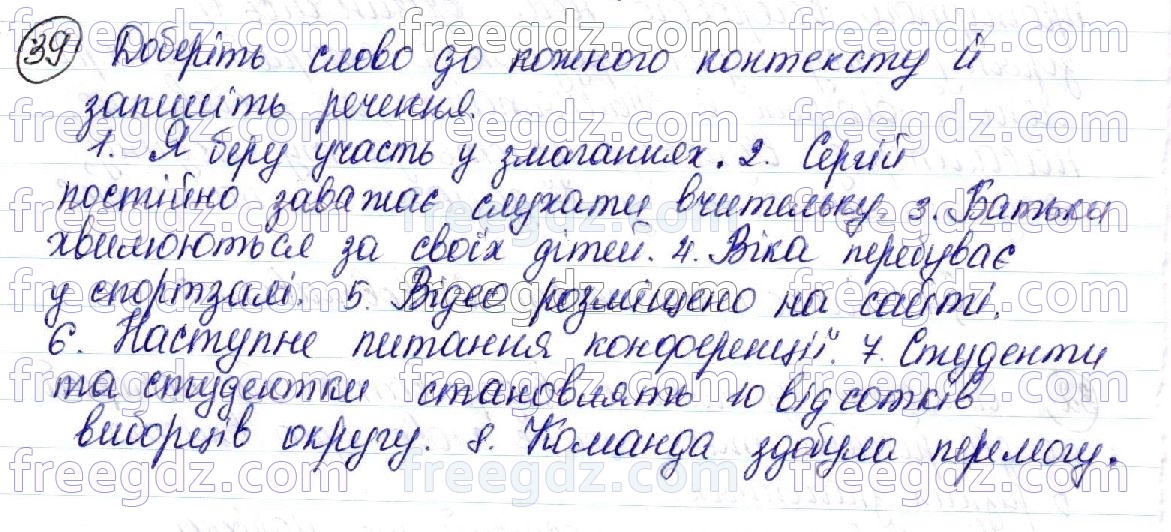 39 Доберіть слово до кожного контексту й
запишіть речення.
1. Я беру участь у змаганнях. 2. Сергій
постійно заважає слухати вчительку. 3. Батьки
хвилюються за своїх дітей. 4. Віка перебуває
у спортзалі. 5. Відео розміщено на сайті.
6. Наступне питання конференції. 7. Студенти
та студентки становлять 10 відсотків
виборців округу. 8. Команда здобула перемогу.
freegdz.com freegdz.com freegdz.com
freegdz.com freegdz.com freegdz.com
freegdz.com freegdz.com freegdz.com
freegdz.com freegdz.com freegdz.com
freegdz.com freegdz.com freegdz.com
freegdz.com freegdz.com freegdz.com